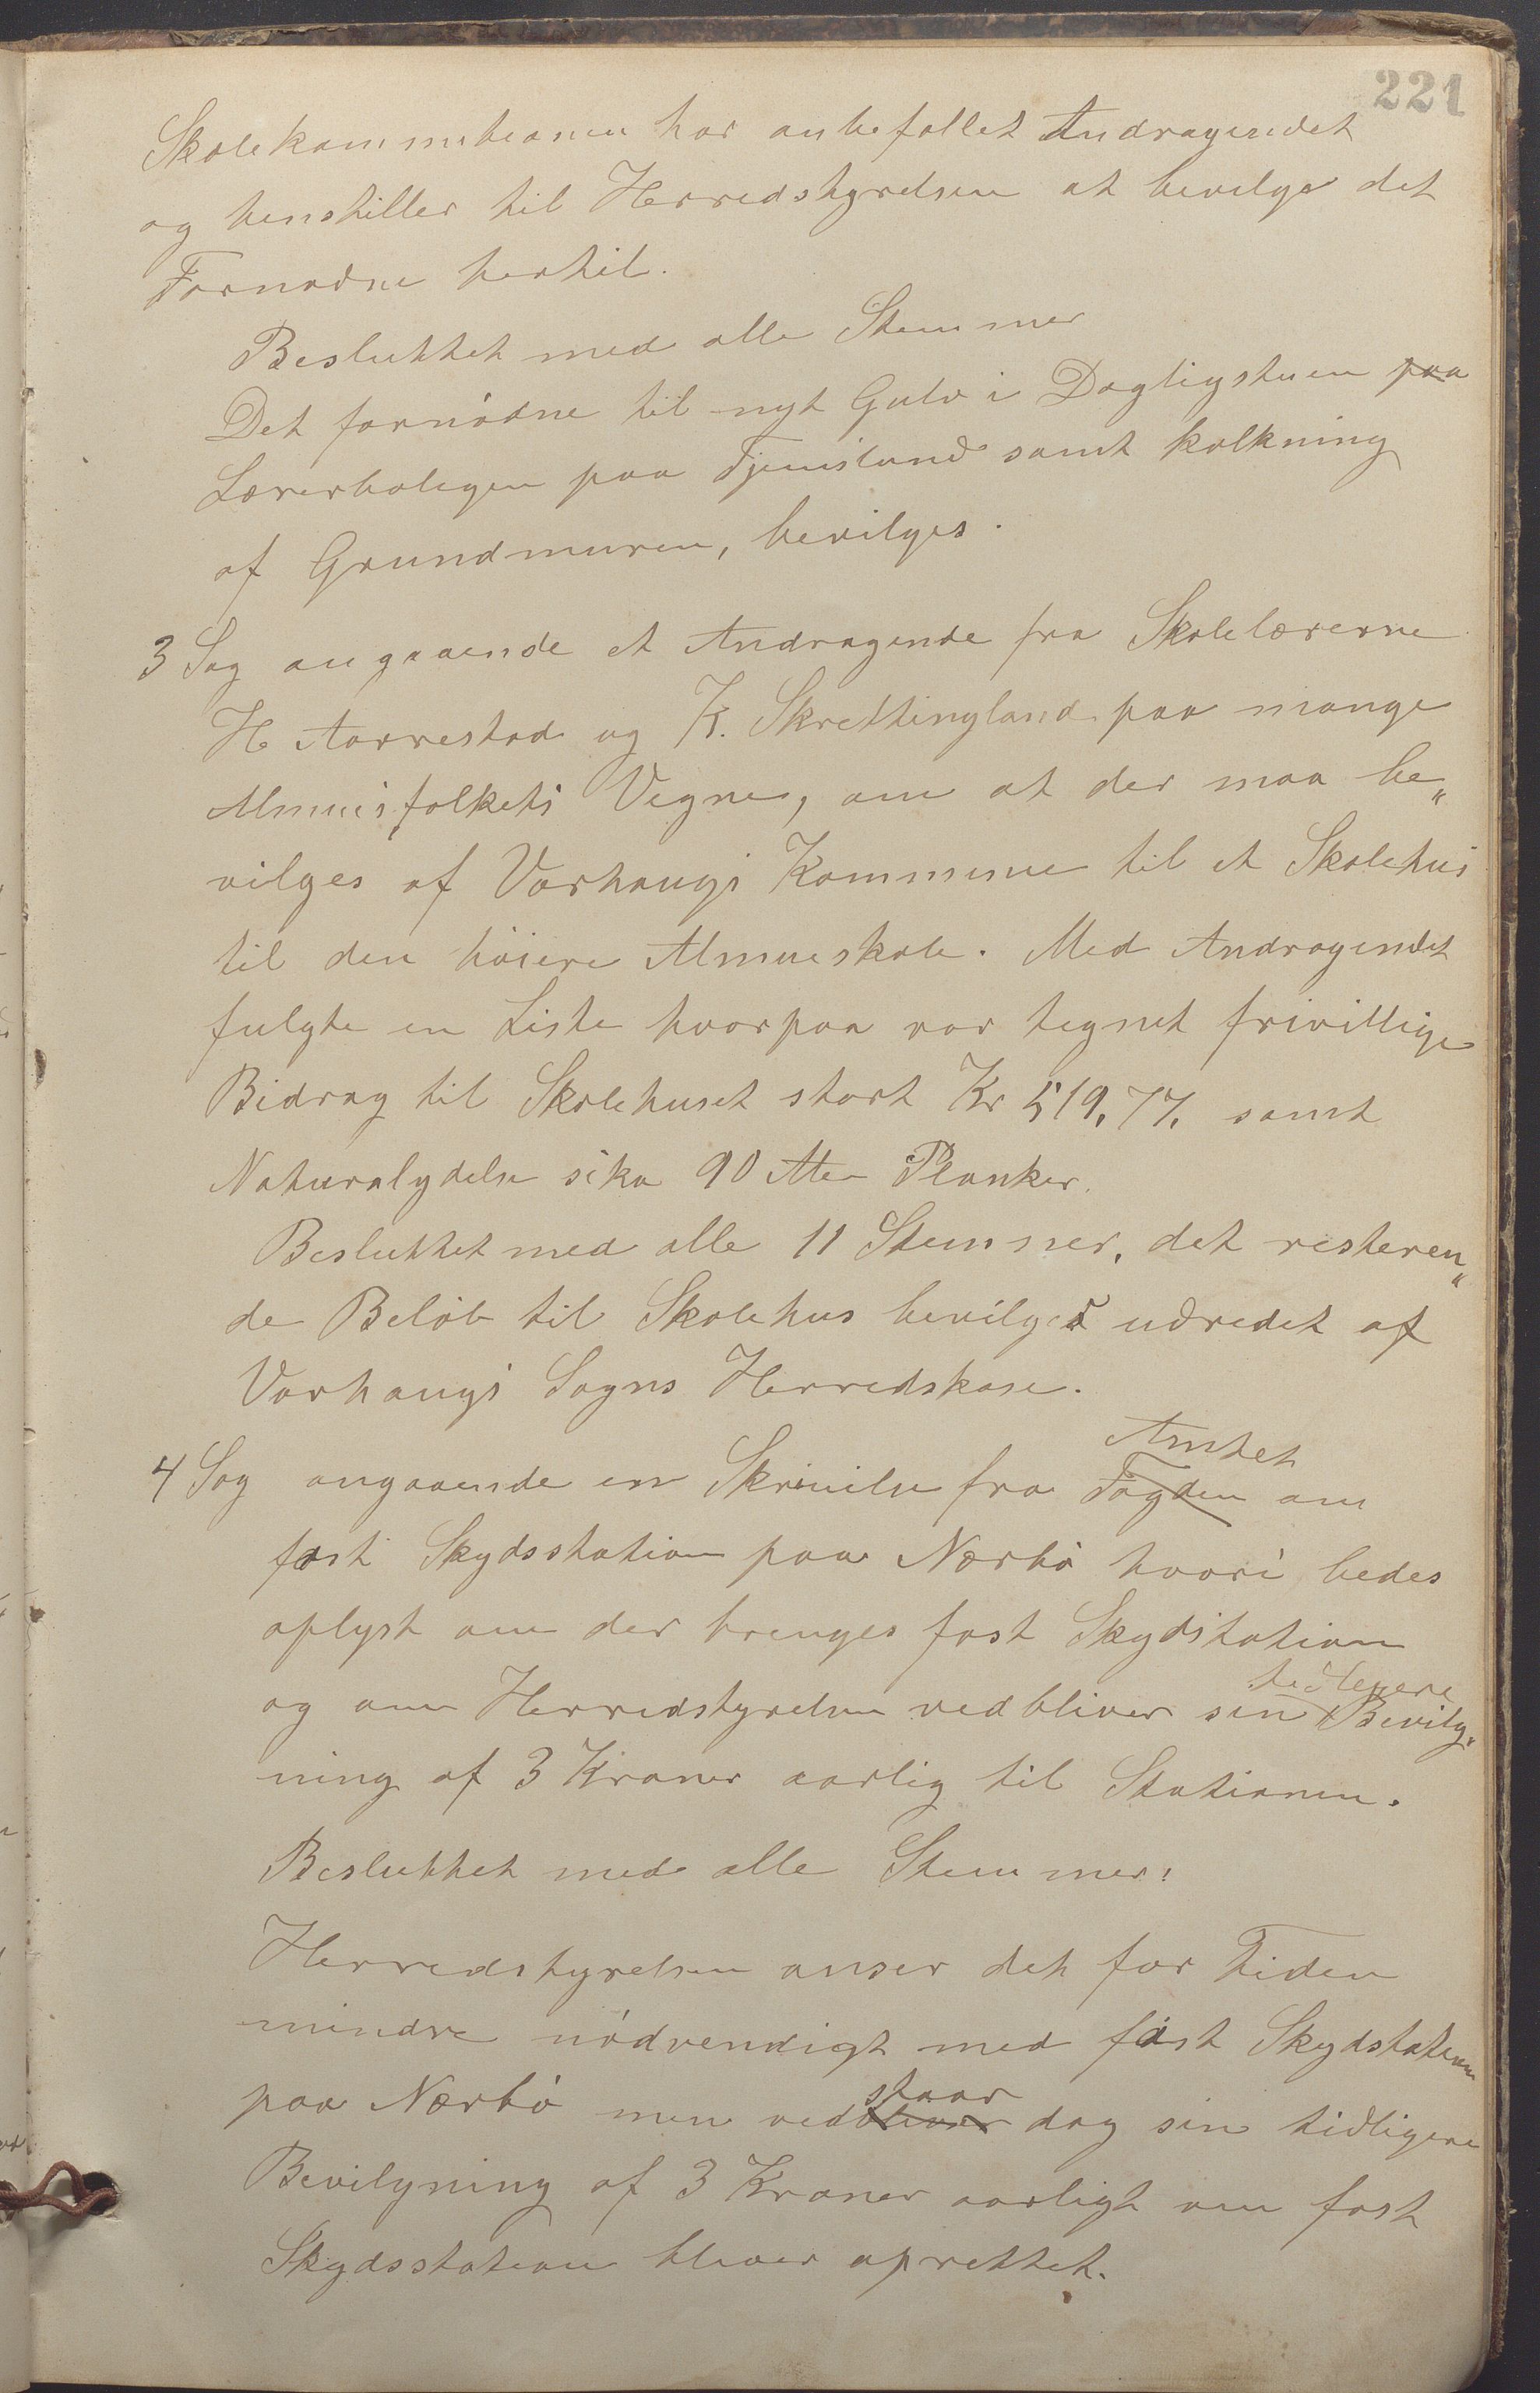 221
Skolekommisionen har anbefallet Andragendet
og henstiller til Herredstyrelsen at bevilge det
Fornødne hertil.
Besluttet med alle Stemmer
Det fornødne til nyt Gulv i Dagligstuen paa
Lærerboligen paa Tjemsland samt kalkning
af Grundmuren, bevilges.
3 Sag angaaende et Andragende fra Skolelærerne
H Aarrestad og K. Skrettingland paa mange
Almuesfolkets Vegne, om at der maa be„
vilges af Varhaugs Kommune til et Skolehus
til den høiere Almueskole. Med Andragendet
fulgte en Liste hvorpaa var tegnet frivillige
Bidrag til Skolehuset stort Kr 519,77, samt
Naturalydelse sika 90 Alen Planker.
Besluttet med alle 11 Stemmer, det resteren„
de Beløb til Skolehus bevilges udredet af
Varhaugs Sogns Herredskase.
Amtet
4 Sag angaaende en Skrivelse fra Fogden om
fast Skydsstation paa Nærbø hvori bedes
oplyst om der trenges fast Skydstation
tidligere
og om Herredstyrelsen vedbliver sin Bevilg„
ning af 3 Kroner aarlig til Stationen.
Besluttet med alle Stemmer:
Herredstyrelsen anser det for Tiden
mindre nødvendigt med fast Skydstation
staar
paa Nærbø men vedbliver dog sin tidligere
Bevilgning af 3 Kroner aarligt om fast
Skydsstation bliver oprettet.